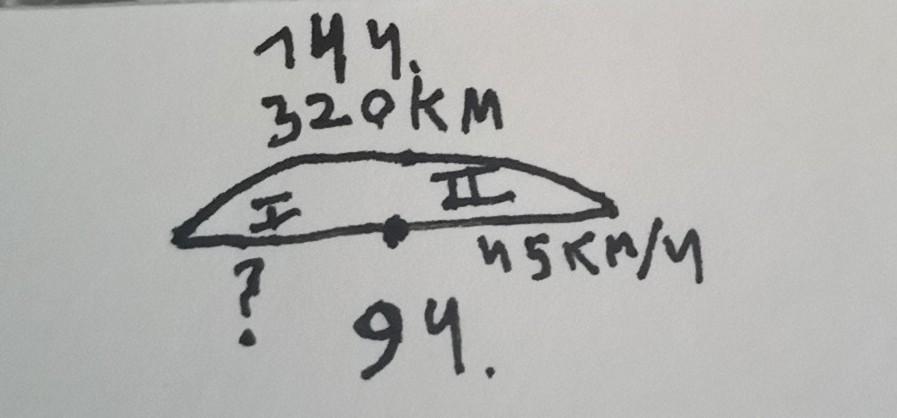 14ч.
320км
I II
? 45км/ч
9ч.